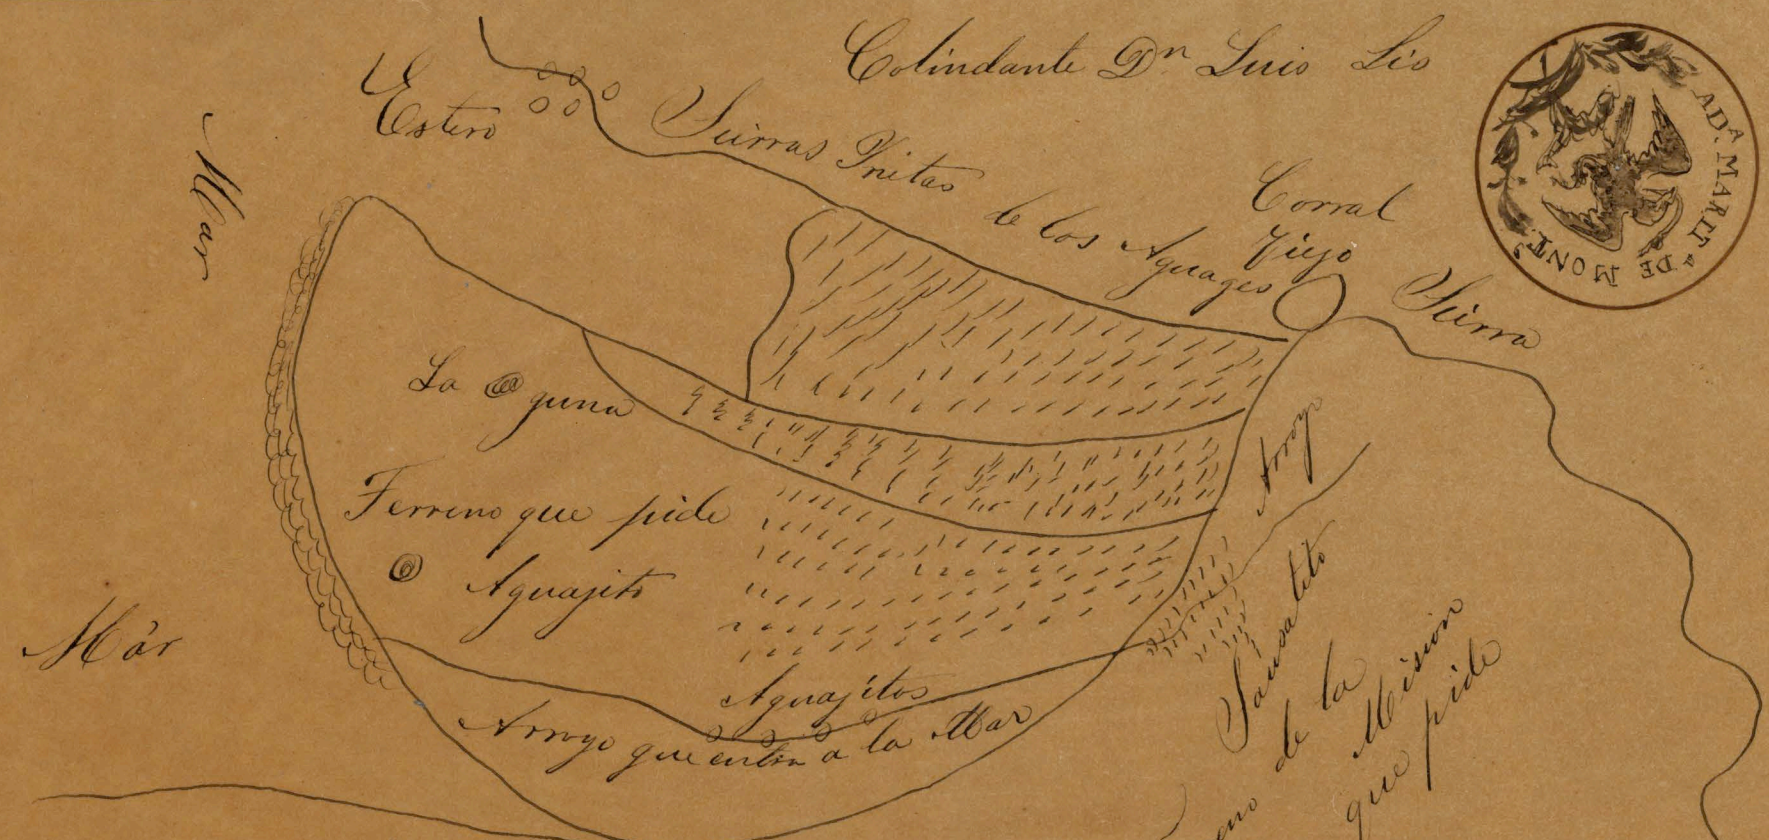 Colindante Dn Luis Lis
Estero
Mar
Sierras Ynitas
de los Aguages
Corral
Viejo
Sierra
ADa. MARITa. DE MONT
La guna
Arroyo
Terreno que pide
Aguajito
Már
Aguajitos
Arroyo que entra a la Mar
Sausalito
de la Mision
que pide